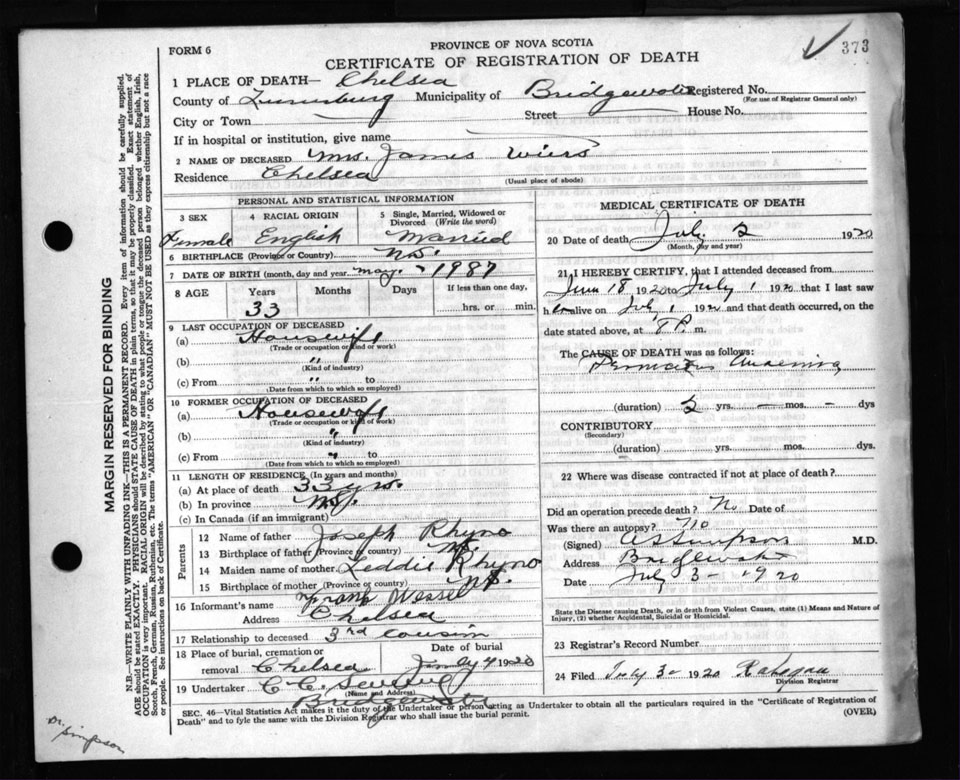 373
FORM 6
PROVINCE OF NOVA SCOTIA
CERTIFICATE OF REGISTRATION OF DEATH
1 PLACE OF DEATH— Chelsea
County of Lunenburg Municipality of Bridgewater Registered No.
(For use of Registrar General only)
City or Town Street House No.
If in hospital or institution, give name
2 NAME OF DECEASED Mrs. James Wiers
Residence Chelsea (Usual place of abode)
PERSONAL AND STATISTICAL INFORMATION
3 SEX 4 RACIAL ORIGIN 5 Single, Married, Widowed or Divorced (Write the word)
Female English Married
6 BIRTHPLACE (Province or Country) N.S.
7 DATE OF BIRTH (month, day and year) May - 1987
8 AGE Years Months Days If less than one day,
33 hrs. or min.
9 LAST OCCUPATION OF DECEASED
(a) Housewife
(Trade or occupation or kind or work)
(b) "
(Kind of industry)
(c) From " to
(Date from which to which so employed)
10 FORMER OCCUPATION OF DECEASED
(a) Housewife
(Trade or occupation or kind of work)
(b) "
(Kind of industry)
(c) From " to
(Date from which to which so employed)
11 LENGTH OF RESIDENCE (In years and months)
(a) At place of death 33 yrs.
(b) In province
(c) In Canada (if an immigrant)
Parents
12 Name of father Joseph Rhyno
13 Birthplace of father (Province or country) N.S.
14 Maiden name of mother Leddie Rhyno
15 Birthplace of mother (Province or country) N.S.
16 Informant's name Frank
Address Chelsea
17 Relationship to deceased 3rd cousin
18 Place of burial, cremation or removal Chelsea
Date of burial 4 1920
19 Undertaker C.C.
(Name and Address)
Bridgewater
MEDICAL CERTIFICATE OF DEATH
20 Date of death July 2 1920
(Month, day and year)
21 I HEREBY CERTIFY, that I attended deceased from
June 18 1920 to July 1 1920 that I last saw
her alive on July 1 1920 and that death occurred, on
date stated above, at P. m.
The CAUSE OF DEATH was as follows:
Pernicious Anaemia
(duration) 2 yrs. — mos. — dys
CONTRIBUTORY
(Secondary)
(duration) yrs. mos. dys.
22 Where was disease contracted if not at place of death?
Did an operation precede death? No Date of
Was there an autopsy? no
(Signed) Simpson M.D.
Address Bridgewater
Date July 3 - 1920
State the Disease causing Death, or in death from Violent Causes, state (1) Means and Nature of Injury, (2) whether Accidental, Suicidal or Homicidal.
23 Registrar's Record Number
24 Filed July 3 - 1920
Division Registrar
SEC. 46—Vital Statistics Act makes it the duty of the Undertaker or person acting as Undertaker to obtain all the particulars required in the "Certificate of Registration of
Death" and to fyle the same with the Division Registrar who shall issue the burial permit. (OVER)
MARGIN RESERVED FOR BINDING
N.B.—WRITE PLAINLY WITH UNFADING INK—THIS IS A PERMANENT RECORD. Every item of information should be carefully supplied.
AGE should be stated EXACTLY. PHYSICIANS should STATE CAUSE OF DEATH in plain terms, so that it may be properly classified. Exact statement of
OCCUPATION is very important. RACIAL ORIGIN will be described by stating to what people or tongue the deceased person belonged, whether English, Irish,
Scotch, French, German, Russian, Ruthenian, etc. The terms "AMERICAN" or "CANADIAN" MUST NOT BE USED as they express citizenship but not a race
or people. See instructions on back of Certificate.
Dr. Simpson